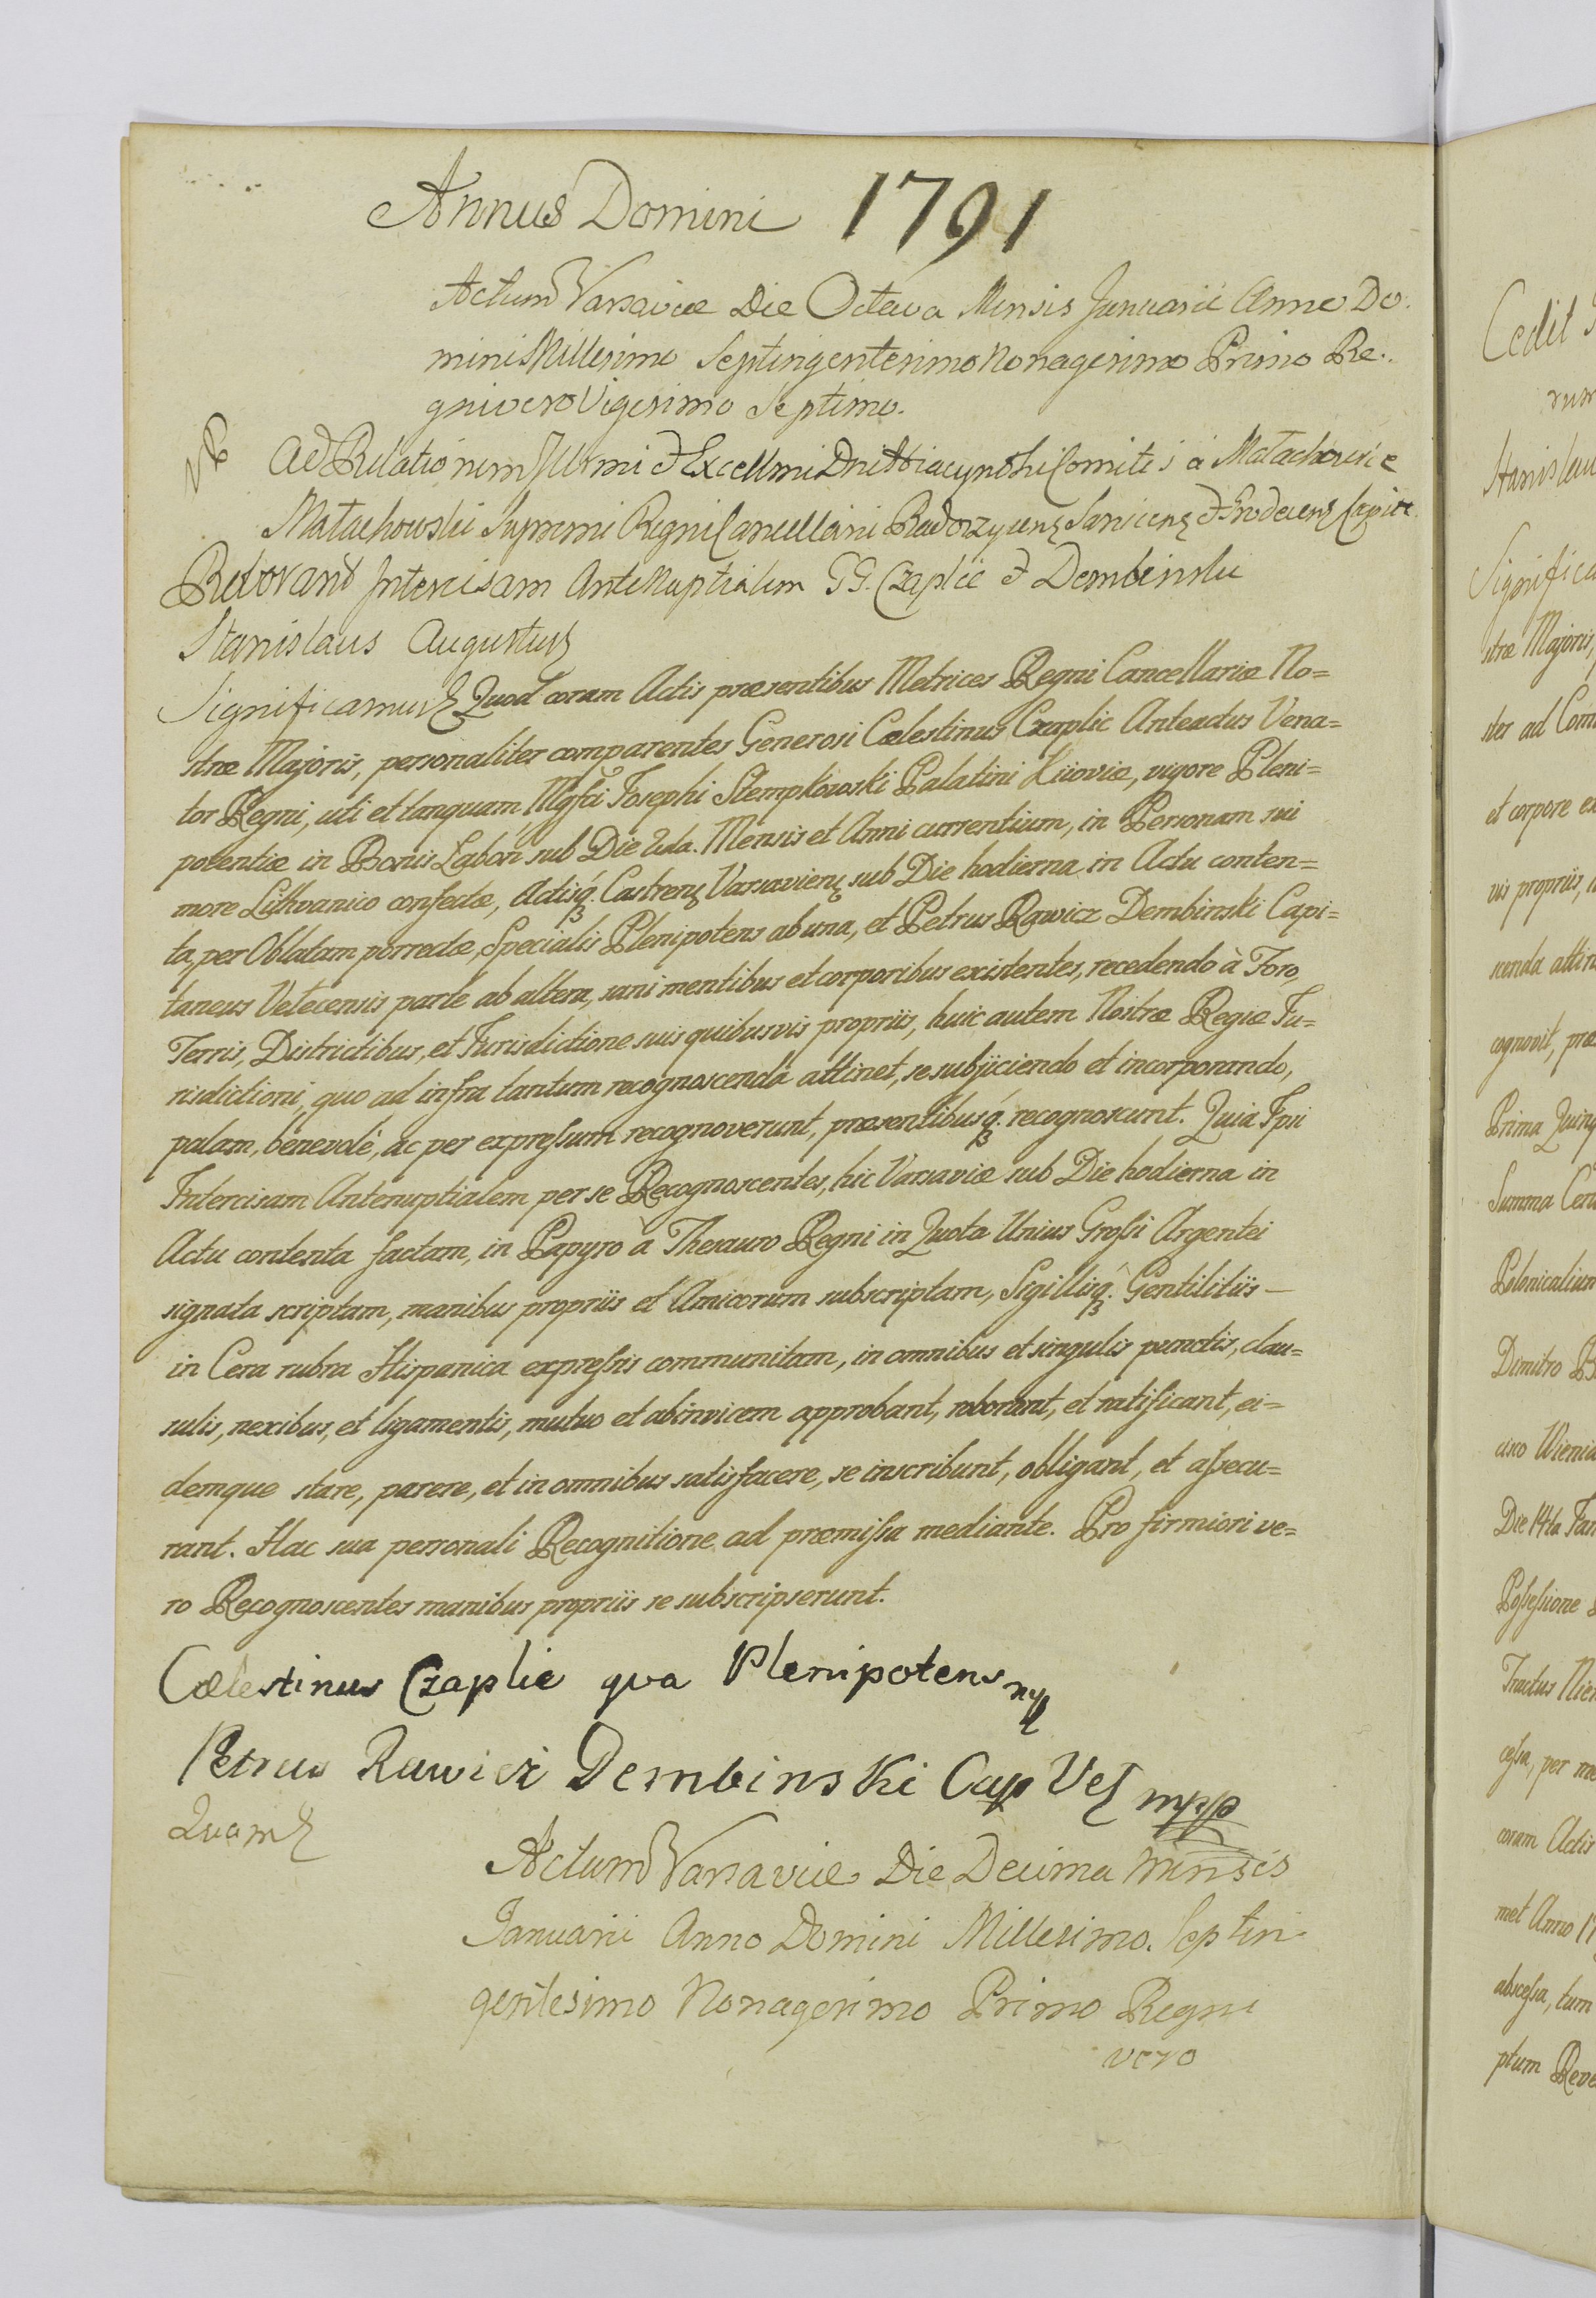 Annus Domini 1791
Actum Varsaviæ Die Octava Mensis Januarii Anno Do-
mini Millesimo Septingentesimo Nonagesimo Primo Re-
gni vero Vigesimo Septimo.
Ad Relationem Illrmi & Excellmi Dni Hiacynthi Comitis à Małachowice
Małachowski Supremi Regni Cancellarii Radoszycen Sanicen & Grodecen Capitt.
Roborant Intercisam Antenuptialem GG. Czaplic & Dembinski
Stanislaus Augustus
Significamus Quod coram Actis præsentibus Metrices Regni Cancellariæ No=
stræ Majoris, personaliter comparentes Generosi Cœlestinus Czaplic Anteactus Vena=
tor Regni, uti et tanquam, Mgfci Josephi Stempkowski Palatini Kiioviæ, vigore Pleni=
potentiæ in Bonis Labon sub Die 2da. Mensis et Anni currentium, in Personam sui
more Lithvanico confectæ, Actisq. Castren Varsavien sub Die hodierna in Actu conten=
ta, per Oblatam porrectæ, Specialis Plenipotens ab una, et Petrus Rawicz Dembinski Capi=
taneus Vetecensis parte ab altera, sani mentibus et corporibus existentes, recedendo à Foro,
Terris, Districtibus, et Jurisdictione suis quibusvis propriis, huic autem Nostræ Regiæ Ju=
risdictioni, quo ad infra tantum recognoscenda attinet, se subjiciendo et incorporando,
palam, benevolè, ac per expreſsum recognoverunt, præsentibusq. recognoscunt. Quia Ipsi
Intercisam Antenuptialem per se Recognoscentes, hic Varsaviæ sub Die hodierna in
Actu contenta factam, in Papyro à Thesauro Regni in Quota Unius Groſsi Argentei
signata scriptam, manibus propriis et Amicorum subscriptam, Sigillisq. Gentilitiis —
in Cera rubra Hispanica expreſsis communitam, in omnibus et singulis punctis, clau=
sulis, nexibus, et ligamentis, mutuo et abinvicem approbant, roborant, et ratificant, ei=
demque stare, parere, et in omnibus satisfacere, se inscribunt, obligant, et aſsecu=
rant. Hac sua personali Recognitione ad præmiſsa mediante. Pro firmiori ve=
ro Recognoscentes manibus propriis se subscripserunt.
Cœlestinus Czaplic qva Plenipotens mp
Petrus Rawicz Dembinski Cap Ve mpp
Quam
Actum Varsaviæ Die Decima Mensis
Januarii Anno Domini Millesimo. Septin-
gentesimo Nonagesimo Primo Regni
vero
Cedit
Stanislau
Significa
stræ Majoris,
ster ad Com
et corpore ex
vis propriis,
scenda attin
cognovit, præ
Prima Quinq
Summa Cent
Polonicalium
Dimitro B
cisco Wienia
Die 14ta Jan
Poſseſsione
Tractus Nie
ceſsa, per m
coram Actis
met Anno 17
absceſsa, tum
ptum Reve